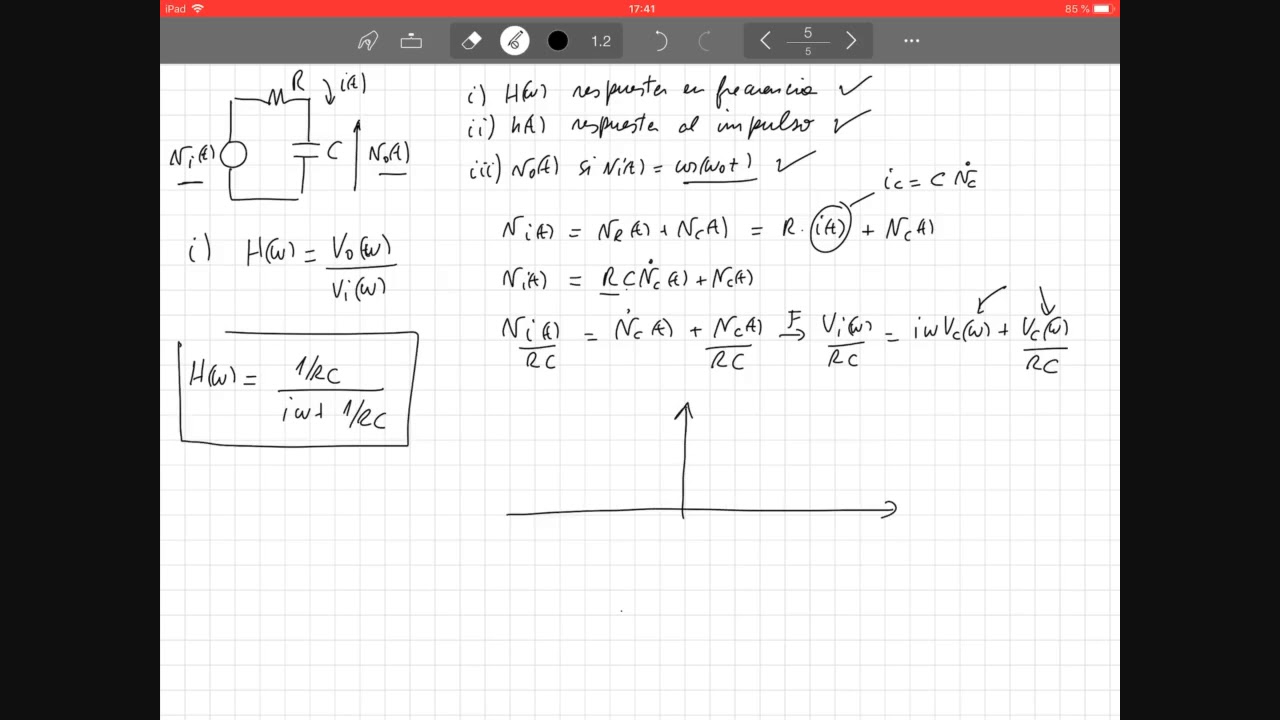 iPad 17:41 85 %
1.2 5
5
R i(t)
Vi(t) C Vo(t)
i) H(ω) respuesta en frecuencia ✓
ii) h(t) respuesta al impulso ✓
iii) Vo(t) si Vi(t) = cos(ω0t) ✓
ic = C V̇c
Vi(t) = VR(t) + Vc(t) = R · i(t) + Vc(t)
i) H(ω) = Vo(ω) / Vi(ω)
Vi(t) = RC V̇c(t) + Vc(t)
Vi(t)/RC = V̇c(t) + Vc(t)/RC F→ Vi(ω)/RC = iωVc(ω) + Vc(ω)/RC
H(ω) = 1/RC / iω + 1/RC